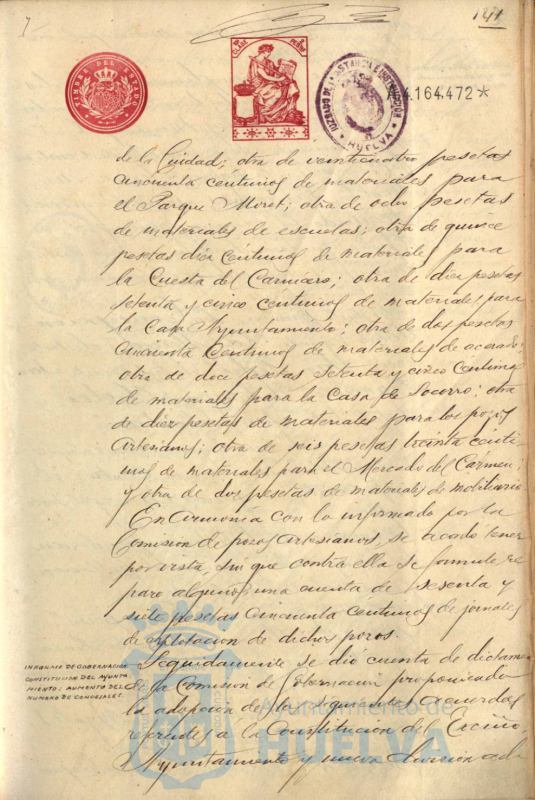 141
TIMBRE DEL ESTADO
10ª CLASE
PESETAS
JUZGADO DE 1ª INSTANCIA E INSTRUCCIÓN
HUELVA
A.4.164.472*
de la Ciudad; otra de veinticuatro pesetas
cincuenta céntimos de materiales para
el Parque Moret; otra de ocho pesetas
de materiales de escuelas; otra de quince
pesetas diez céntimos de materiales para
la Cuesta del Carnicero; otra de diez pesetas
setenta y cinco céntimos de materiales para
la Casa Ayuntamiento; otra de dos pesetas
cincuenta céntimos de materiales de acerado;
otra de doce pesetas setenta y cinco céntimos
de materiales para la Casa de Socorro; otra
de diez pesetas de materiales para los pozos
Artesianos; otra de seis pesetas treinta cénti-
mos de materiales para el Mercado del Cármen;
y otra de dos pesetas de materiales de mobiliario
En armonía con lo informado por la
Comision de pozos Artesianos, se acordó tener
por vista, sin que contra ella se formule re
paro alguno, una cuenta de sesenta y
siete pesetas cincuenta céntimos de jornales
de explotacion de dichos pozos.
INFORME DE GOBERNACION
CONSTITUCION DEL AYUNTA
MIENTO: AUMENTO DEL
NUMERO DE CONCEJALES.
Seguidamente se dió cuenta de dictamen
de la Comision de Gobernacion proponiendo
la adopcion de los siguientes acuerdos
referentes a la Constitucion del Excmo.
Ayuntamiento y nueva division del
Ayuntamiento de
HUELVA